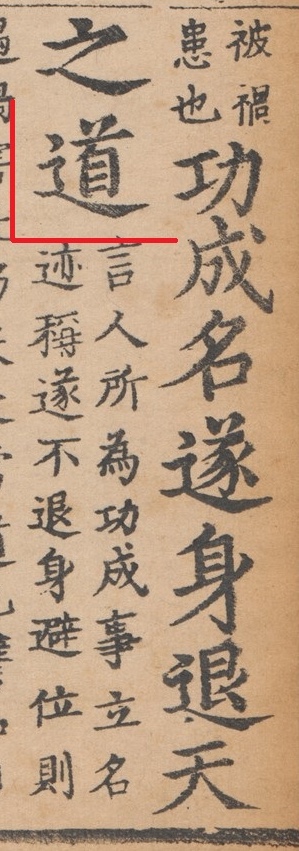 被禍
患也
功成名遂身退天
之道
言人所為功成事立名
迹稱遂不退身避位則